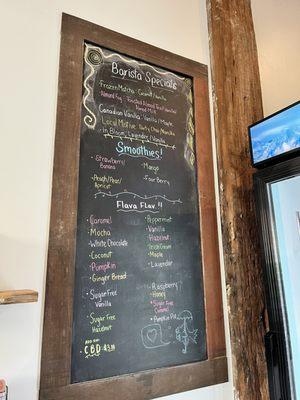 Barista Specials
Frozen Matcha: Coconut / Vanilla
Almond Fog: Toasted Almond Tea
Canadian Vanilla: Vanilla / Maple
Local Motive: Dirty Chai / Vanilla
In Bloom: Lavender / Vanilla
Smoothies!
• Strawberry / Banana
• Mango
• Peach / Pear / Apricot
• Four Berry
Flava Flav!!
• Caramel
• Mocha
• White Chocolate
• Coconut
• Pumpkin
• Ginger Bread
• Sugar Free Vanilla
• Sugar Free Hazelnut
• Peppermint
• Vanilla
• Hazelnut
• Irish Cream
• Maple
• Lavender
• Raspberry
• Honey
• Sugar Free Caramel
• Pumpkin Pie
ADD
CBD